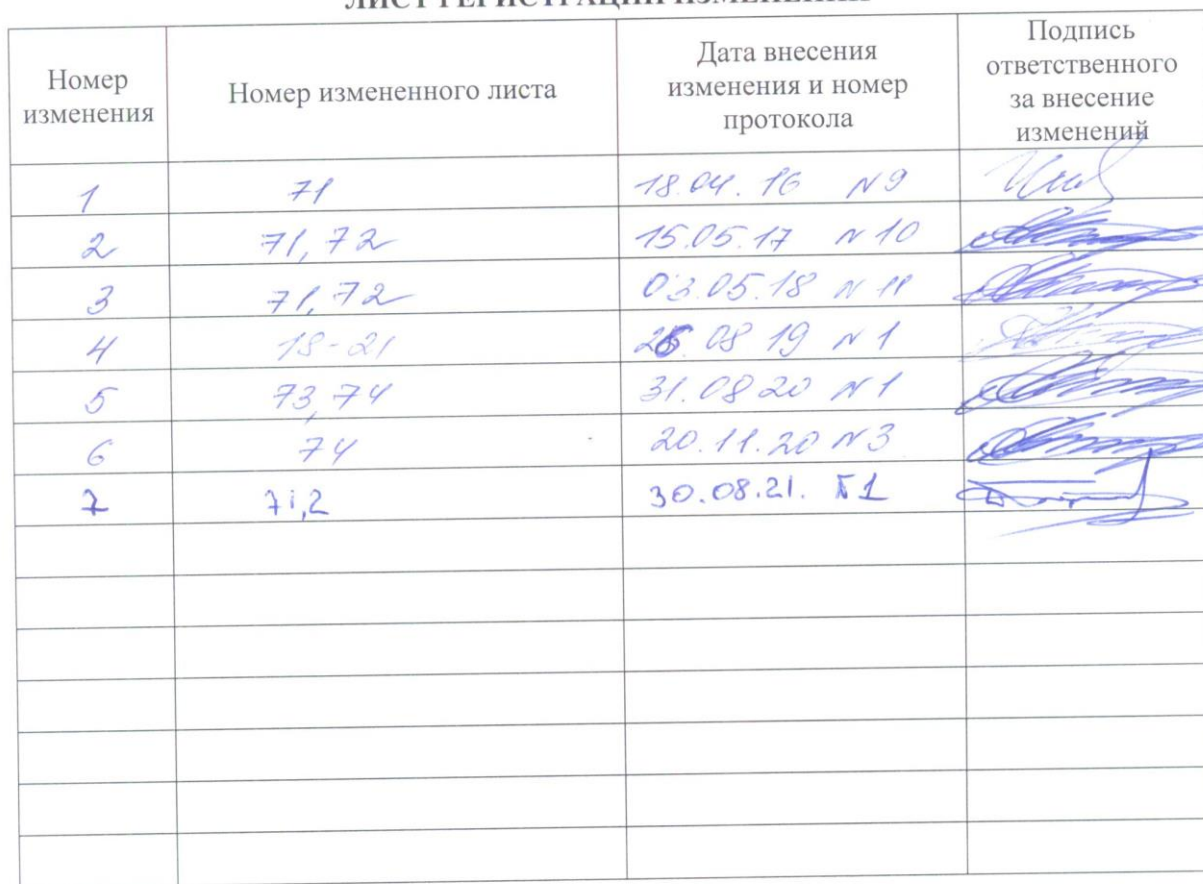 ЛИСТ РЕГИСТРАЦИИ ИЗМЕНЕНИЙ
Номер изменения
Номер измененного листа
Дата внесения изменения и номер протокола
Подпись ответственного за внесение изменений
1 71 18.04.16 N9
2 71, 72 15.05.17 N 10
3 71, 72 03.05.18 N 11
4 18-21 08 19 N 1
5 73, 74 31.08 20 N 1
6 74 20.11.20 N3
7 71,2 30.08.21. №1